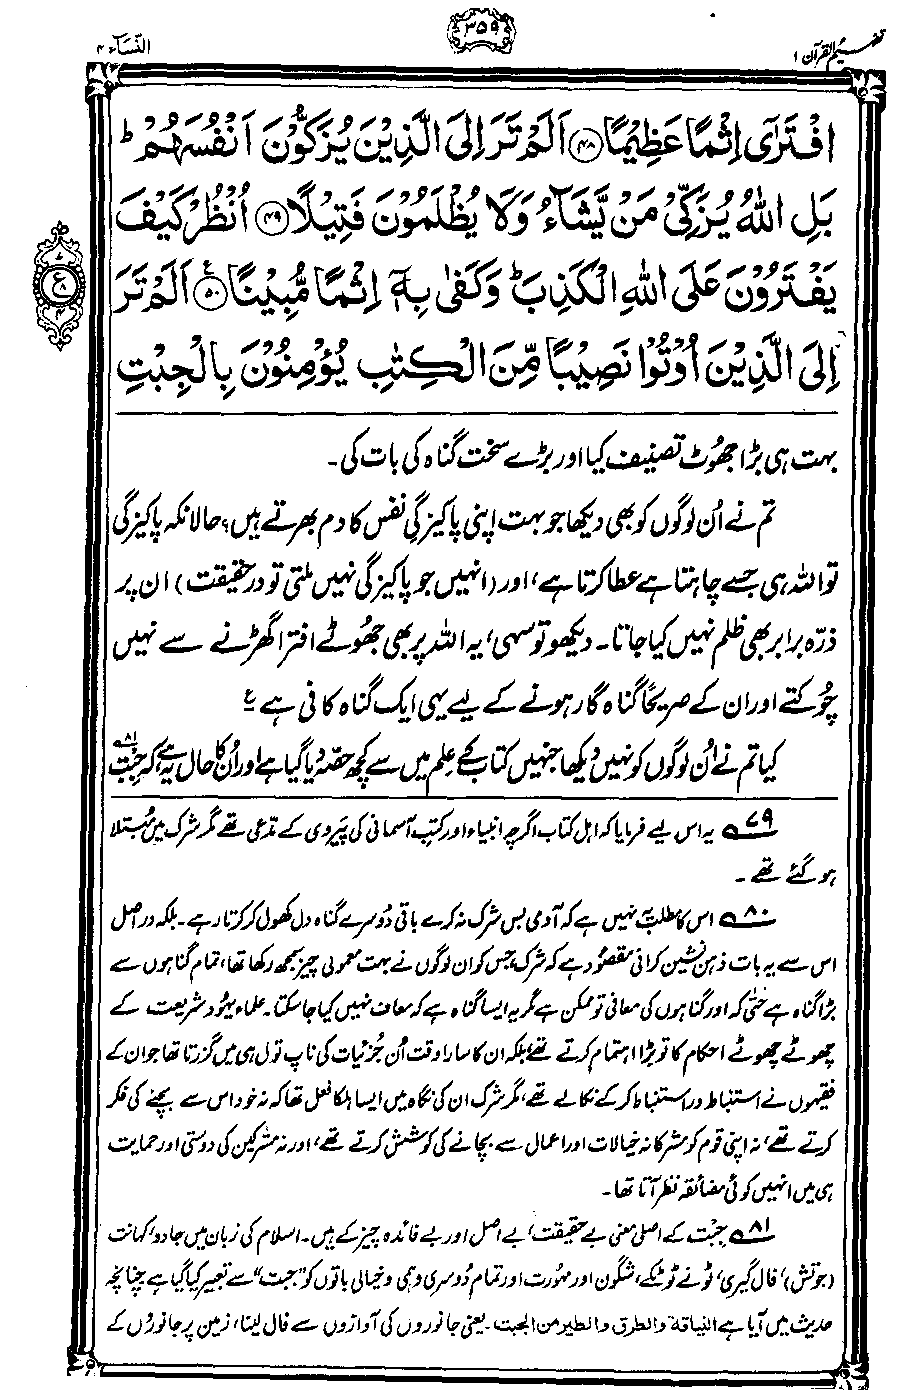 تفہیم القرآن ۱
۳۵۹
النساء ۴
افْتَرٰٓى اِثْمًا عَظِيْمًا ﴿۴۸﴾ اَلَمْ تَرَ اِلَى الَّذِيْنَ يُزَكُّوْنَ اَنْفُسَهُمْ ؕ
بَلِ اللّٰهُ يُزَكِّيْ مَنْ يَّشَآءُ وَلَا يُظْلَمُوْنَ فَتِيْلًا ﴿۴۹﴾ اُنْظُرْ كَيْفَ
يَفْتَرُوْنَ عَلَى اللّٰهِ الْكَذِبَ ؕ وَكَفٰى بِهٖٓ اِثْمًا مُّبِيْنًا ﴿۵۰﴾ اَلَمْ تَرَ
اِلَى الَّذِيْنَ اُوْتُوْا نَصِيْبًا مِّنَ الْكِتٰبِ يُؤْمِنُوْنَ بِالْجِبْتِ
بہت ہی بڑا جھُوٹ تصنیف کیا اور بڑے سخت گناہ کی بات کی۔
تم نے اُن لوگوں کو بھی دیکھا جو بہت اپنی پاکیزگیِ نفس کا دم بھرتے ہیں؟ حالانکہ پاکیزگی
تو اللہ ہی جسے چاہتا ہے عطا کرتا ہے، اور (انہیں جو پاکیزگی نہیں ملتی تو در حقیقت) ان پر
ذرّہ برابر بھی ظلم نہیں کیا جاتا۔ دیکھو تو سہی، یہ اللہ پر بھی جھُوٹے افترا گھڑنے سے نہیں
چُوکتے اور ان کے صریحًا گناہ گار ہونے کے لیے یہی ایک گناہ کافی ہے ؏
کیا تم نے اُن لوگوں کو نہیں دیکھا جنہیں کتاب کے علم میں سے کچھ حصّہ دیا گیا ہے اور اُن کا حال یہ ہے کہ جِبْت ۸۱
۷۹ یہ اس لیے فرمایا کہ اہل کتاب اگرچہ انبیاء اور کتبِ آسمانی کی پَیروی کے مدّعی تھے مگر شرک میں مُبتلا
ہو گئے تھے۔
۸۰ اس کا مطلب یہ نہیں ہے کہ آدمی بس شرک نہ کرے باقی دُوسرے گناہ دل کھول کر کرتا رہے۔ بلکہ دراصل
اس سے یہ بات ذہن نشین کرانی مقصُود ہے کہ شرک جس کو ان لوگوں نے بہت معمولی چیز سمجھ رکھا تھا، تمام گناہوں سے
بڑا گناہ ہے حتٰی کہ اور گناہوں کی معافی تو ممکن ہے مگر یہ ایسا گناہ ہے کہ معاف نہیں کیا جا سکتا۔ علماء یہُود شریعت کے
چھوٹے چھوٹے احکام کا تو بڑا اہتمام کرتے تھے، بلکہ ان کا سارا وقت اُن جُزئیات کی ناپ تول ہی میں گزرتا تھا جو ان کے
فقیہوں نے استنباط در استنباط کر کے نکالے تھے، مگر شرک ان کی نگاہ میں ایسا ہلکا فعل تھا کہ نہ خود اس سے بچنے کی فکر
کرتے تھے، نہ اپنی قوم کو مشرکانہ خیالات اور اعمال سے بچانے کی کوشش کرتے تھے، اور نہ مشرکین کی دوستی اور حمایت
ہی میں انہیں کوئی مضائقہ نظر آتا تھا۔
۸۱ جِبْت کے اصلی معنی بے حقیقت، بے اصل اور بے فائدہ چیز کے ہیں۔ اسلام کی زبان میں جادو، کہانت
(جوتش)، فال گیری، ٹونے ٹوٹکے، شگون اور مہُورت اور تمام دُوسری وہمی و خیالی باتوں کو "جبت" سے تعبیر کیا گیا ہے چنانچہ
حدیث میں آیا ہے النیاقة والطرق والطیر من الجبت۔ یعنی جانوروں کی آوازوں سے فال لینا، زمین پر جانوروں کے